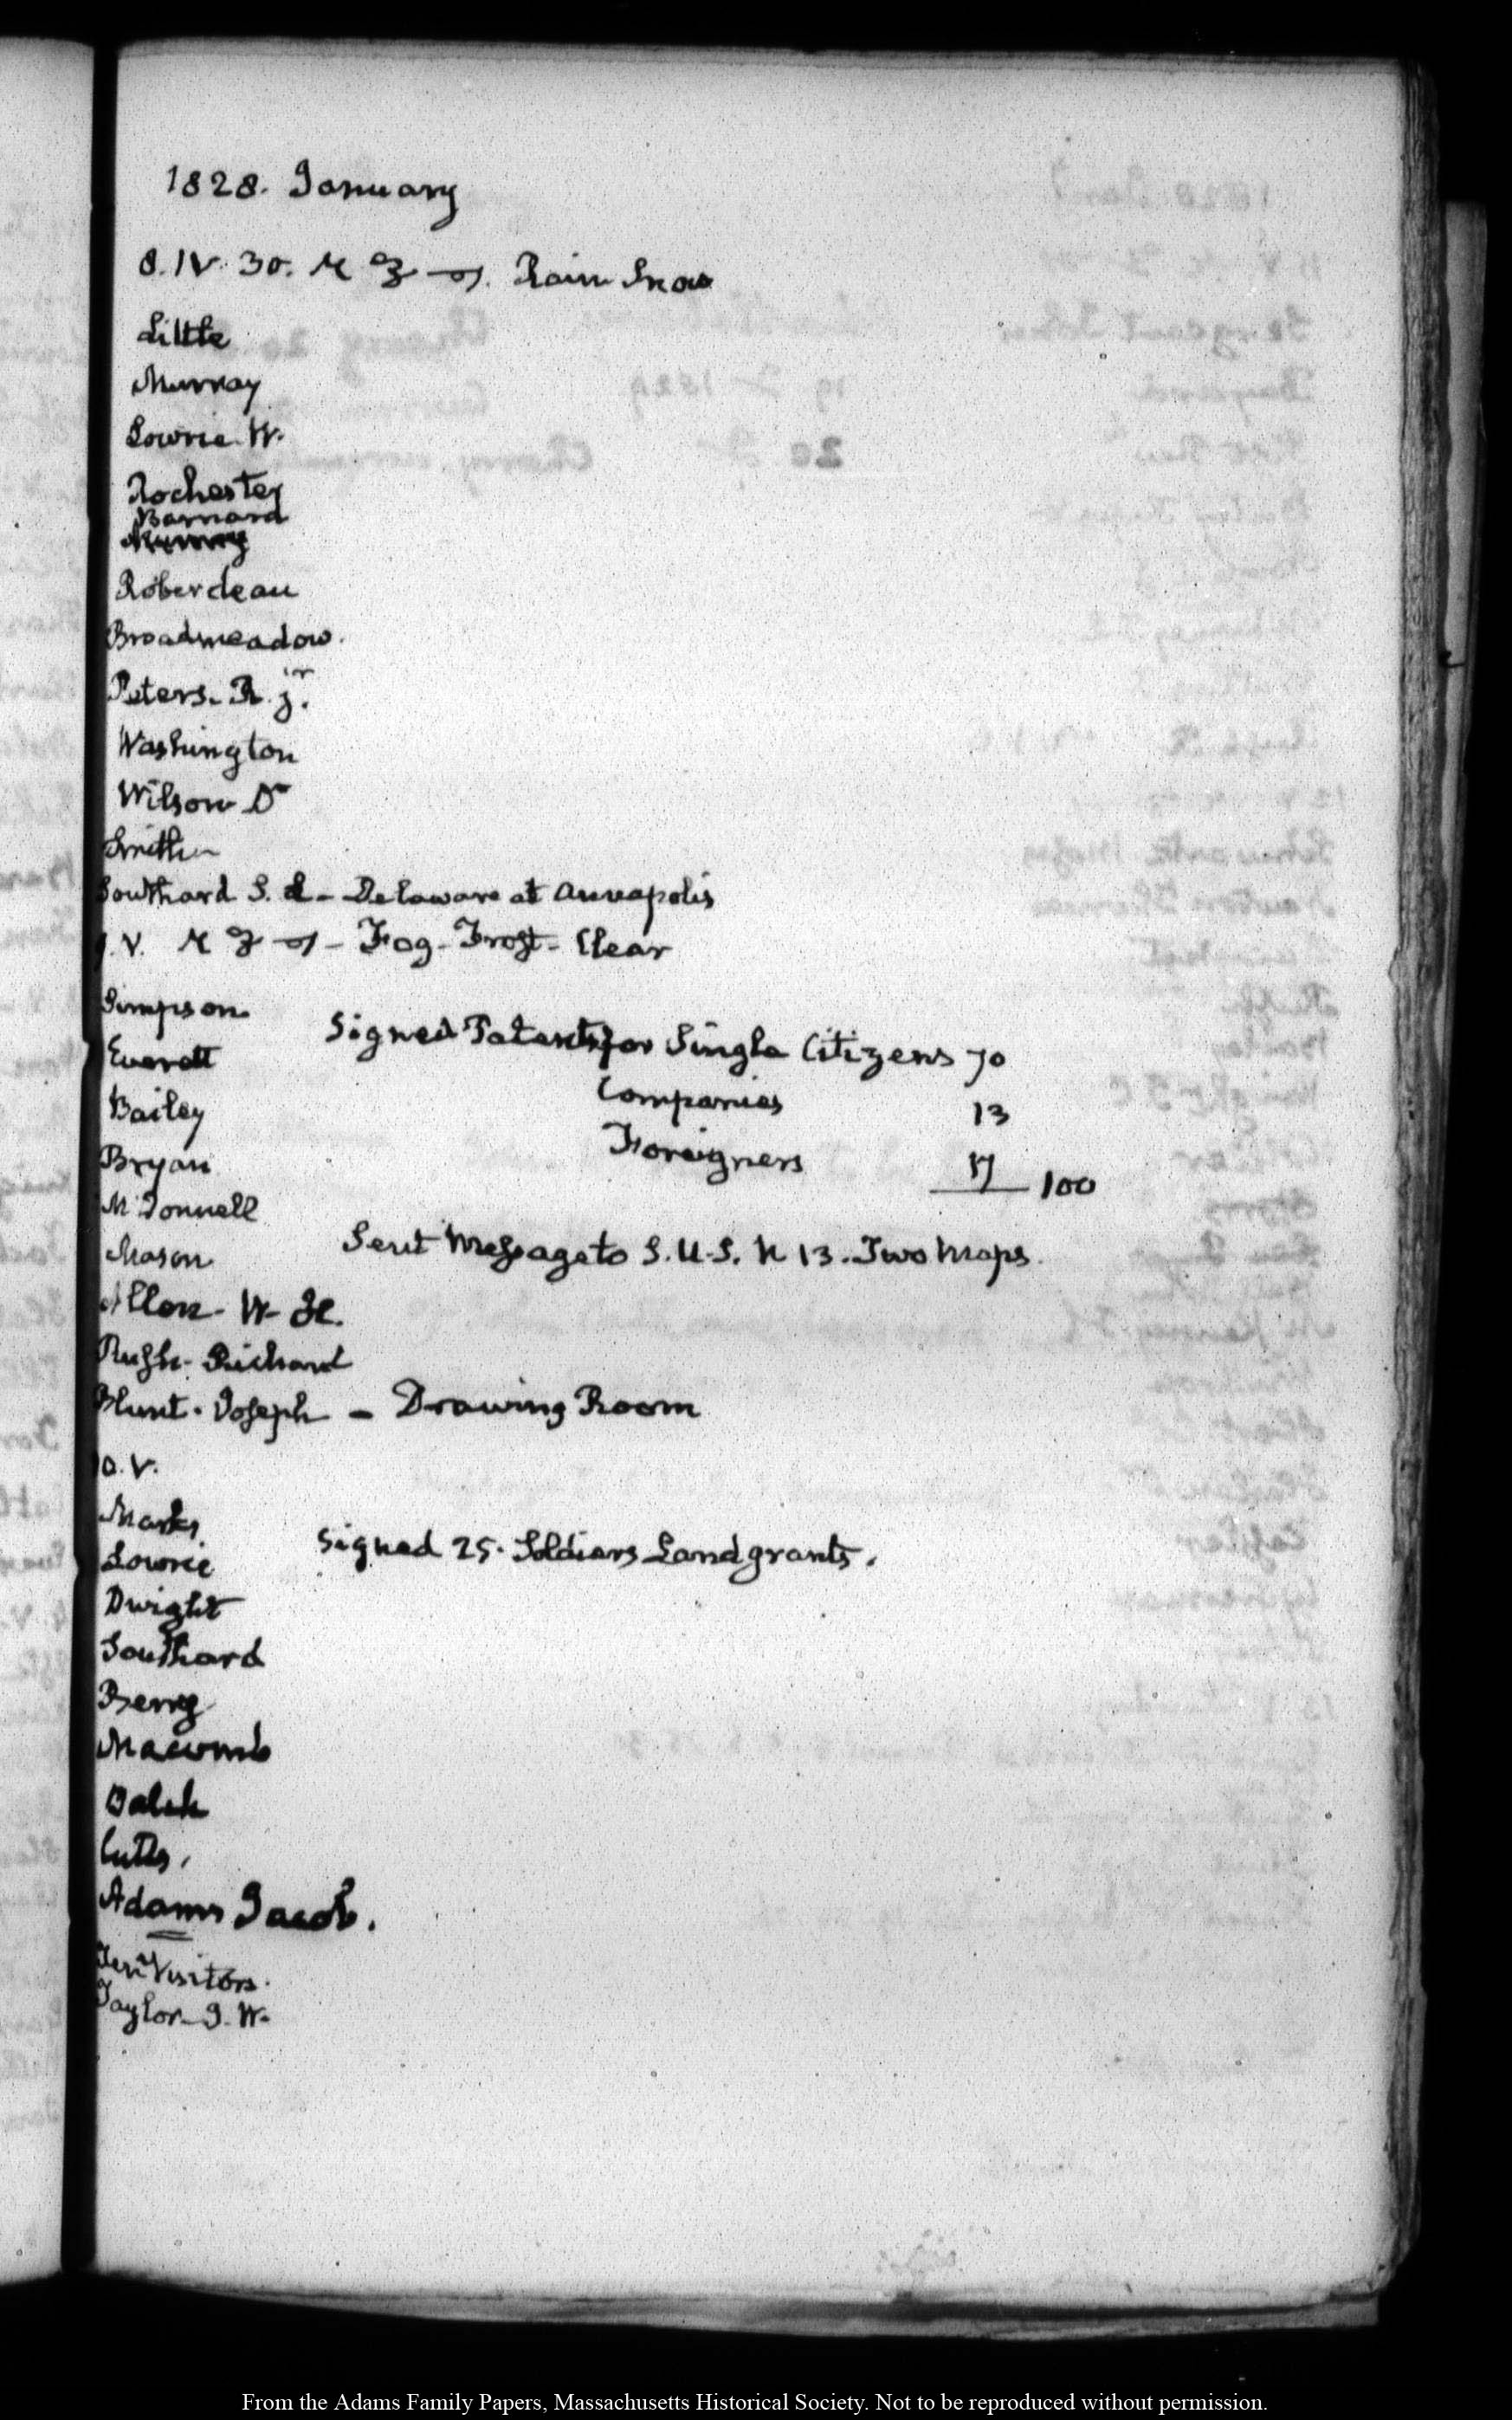 1828. January
8. IV. 30. Rain Snow
Little
Murray
Lowrie W.
Rochester
Barnard
Roberdeau
Broadmeadow.
Peters. R. jr.
Washington
Wilson Dr
Smith
Southard S. L – Delaware at Annapolis
9. V. – Fog – Frost – Clear
Simpson.
Signed Patents for Single Citizens 70
Everett
Companies 13
Bailey
Foreigners 17 100
Bryan
McDonnell
Sent Message to S. U. S. N 13. Two Maps.
Mason
Allen. W. H.
Rush. Richard
Blunt. Joseph – Drawing Room
10. V.
Marks
Signed 25. Soldiers Land grants.
Lowrie
Dwight
Southard
Berry
Macomb
Balch
Cutts.
Adams Jacob.
Ten Visitors.
Taylor. J. W.
From the Adams Family Papers, Massachusetts Historical Society. Not to be reproduced without permission.